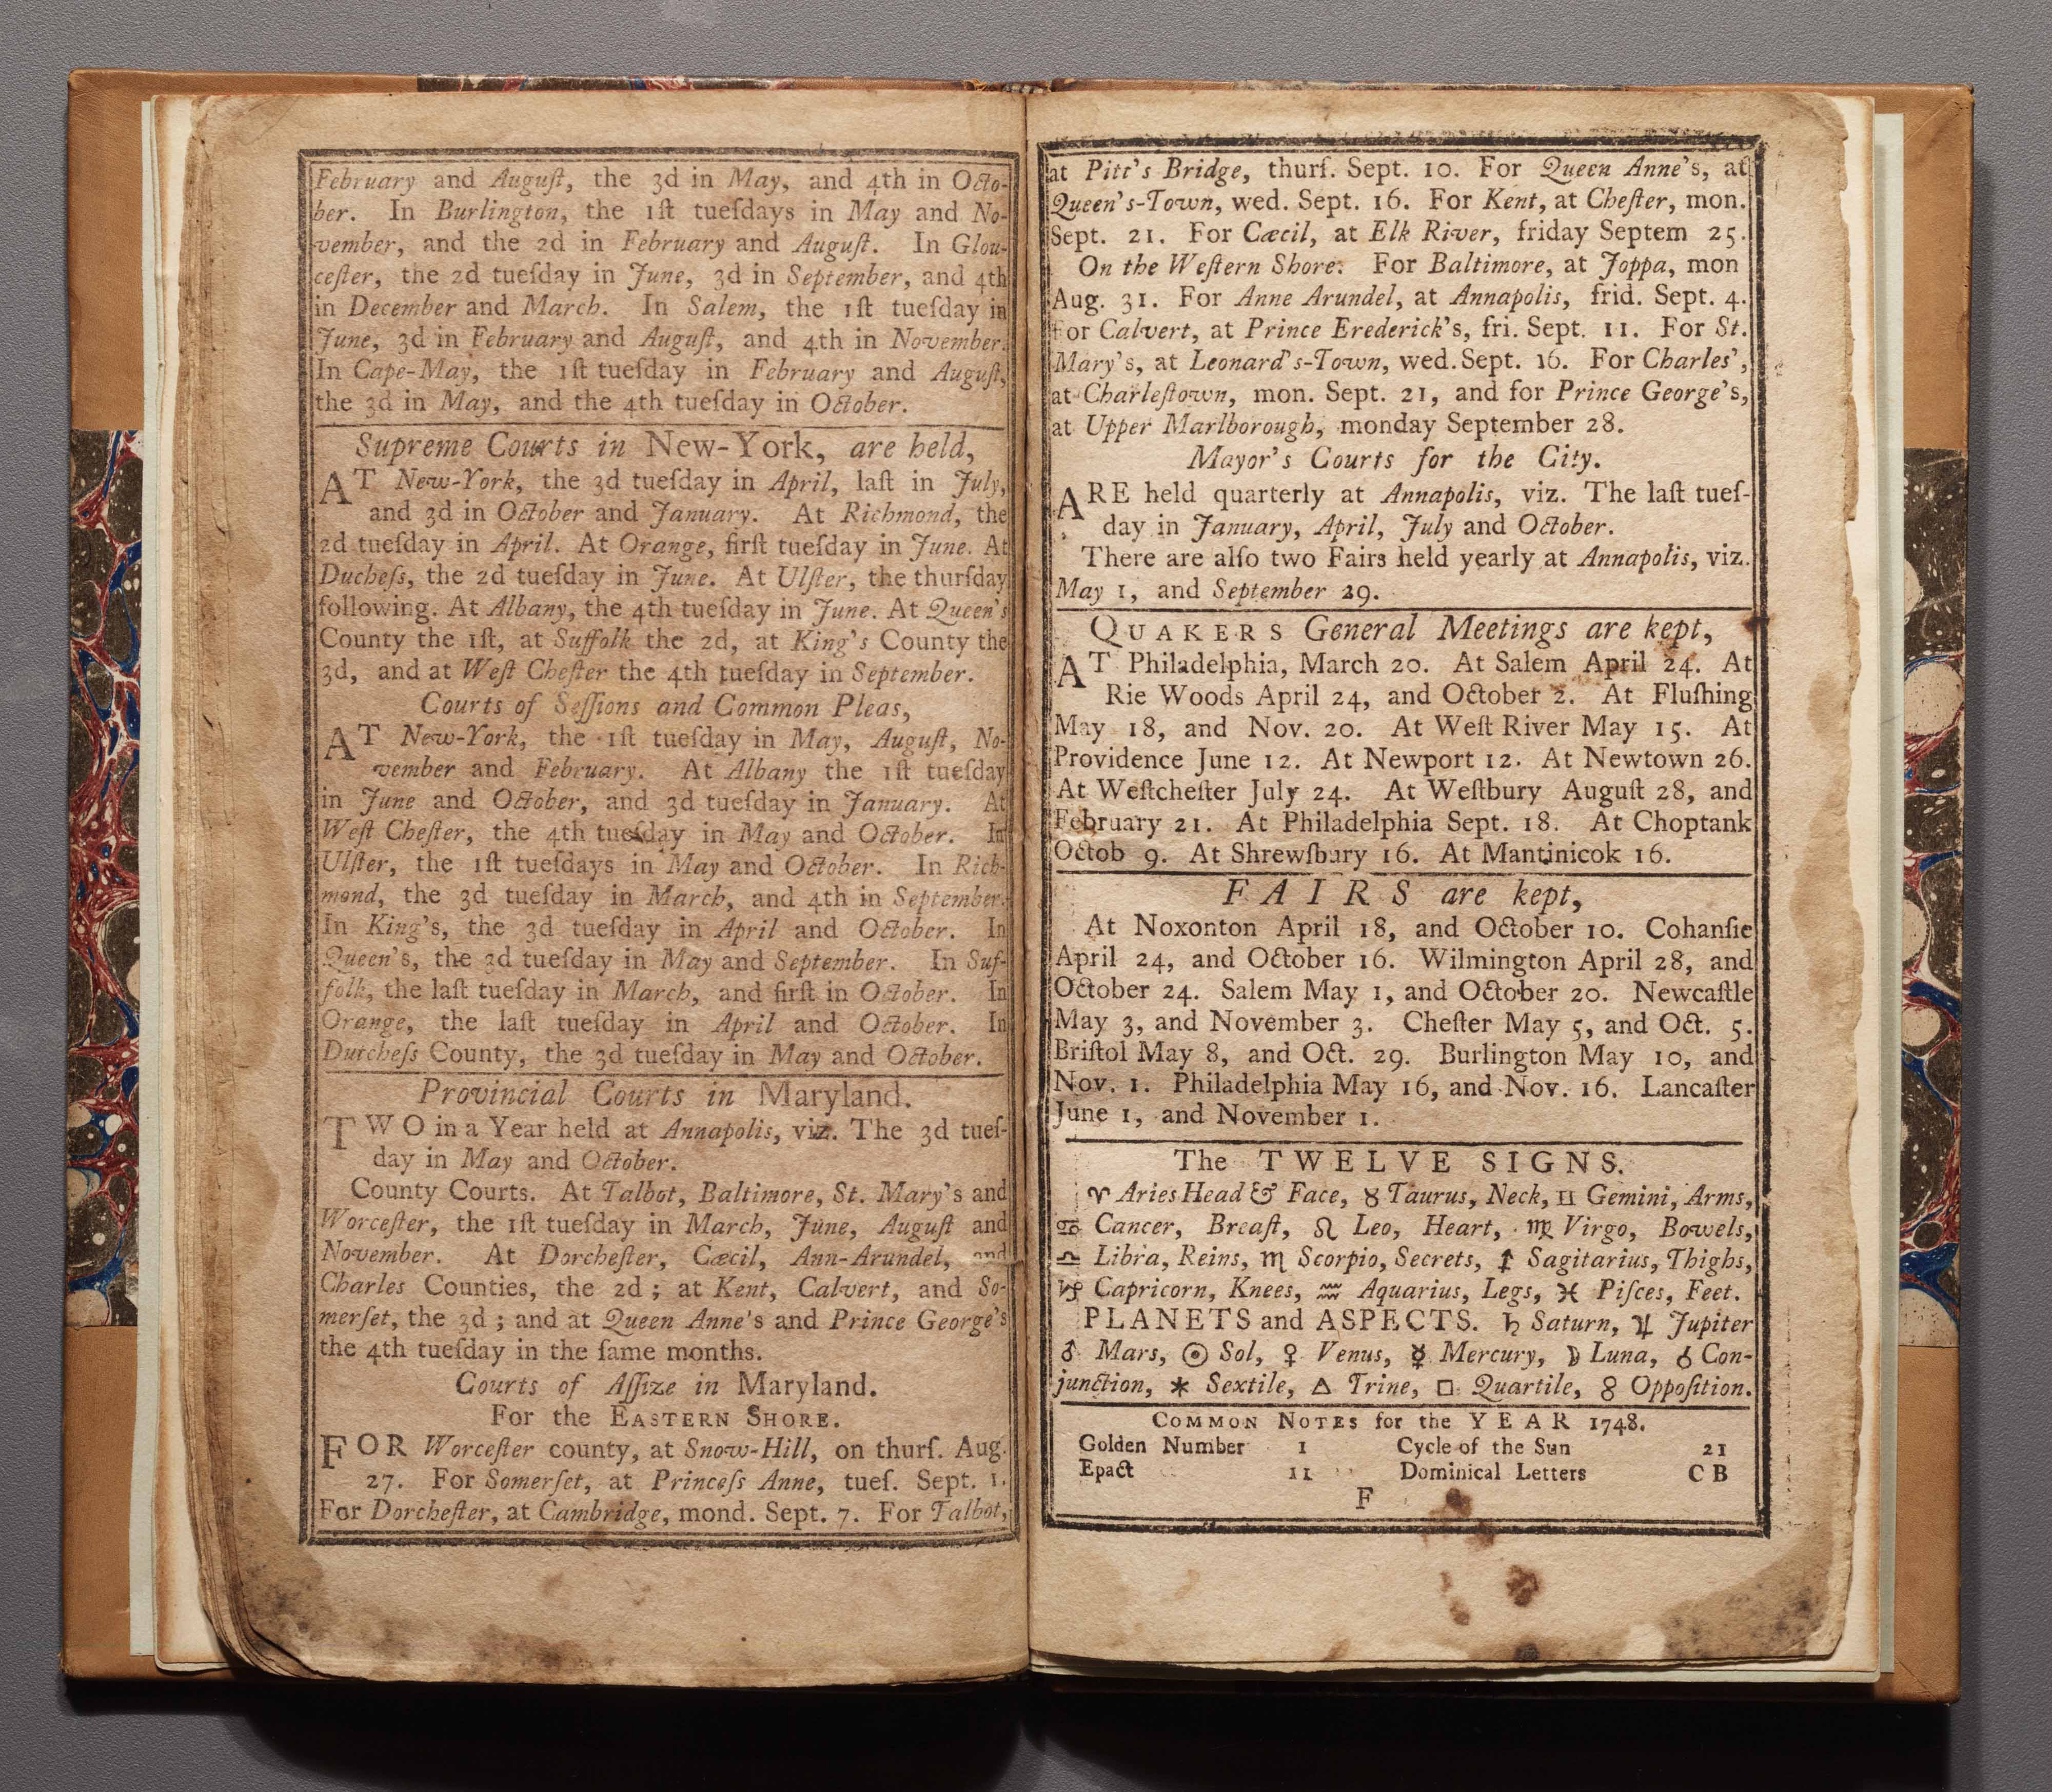 February and Auguſt, the 3d in May, and 4th in Octo-
ber. In Burlington, the 1ſt tueſdays in May and No-
vember, and the 2d in February and Auguſt. In Glou-
ceſter, the 2d tueſday in June, 3d in September, and 4th
in December and March. In Salem, the 1ſt tueſday in
June, 3d in February and Auguſt, and 4th in November.
In Cape-May, the 1ſt tueſday in February and Auguſt,
the 3d in May, and the 4th tueſday in October.
Supreme Courts in New-York, are held,
AT New-York, the 3d tueſday in April, laſt in July,
and 3d in October and January. At Richmond, the
2d tueſday in April. At Orange, firſt tueſday in June. At
Ducheſs, the 2d tueſday in June. At Ulſter, the thurſday
following. At Albany, the 4th tueſday in June. At Queen's
County the 1ſt, at Suffolk the 2d, at King's County the
3d, and at Weſt Cheſter the 4th tueſday in September.
Courts of Seſſions and Common Pleas,
AT New-York, the 1ſt tueſday in May, Auguſt, No-
vember and February. At Albany the 1ſt tueſday
in June and October, and 3d tueſday in January. At
Weſt Cheſter, the 4th tueſday in May and October. In
Ulſter, the 1ſt tueſdays in May and October. In Rich-
mond, the 3d tueſday in March, and 4th in September.
In King's, the 3d tueſday in April and October. In
Queen's, the 3d tueſday in May and September. In Suf-
folk, the laſt tueſday in March, and firſt in October. In
Orange, the laſt tueſday in April and October. In
Dutcheſs County, the 3d tueſday in May and October.
Provincial Courts in Maryland.
TWO in a Year held at Annapolis, viz. The 3d tueſ-
day in May and October.
County Courts. At Talbot, Baltimore, St. Mary's and
Worceſter, the 1ſt tueſday in March, June, Auguſt and
November. At Dorcheſter, Cæcil, Ann-Arundel, and
Charles Counties, the 2d ; at Kent, Calvert, and So-
merſet, the 3d ; and at Queen Anne's and Prince George's
the 4th tueſday in the ſame months.
Courts of Aſſize in Maryland.
For the EASTERN SHORE.
FOR Worceſter county, at Snow-Hill, on thurſ. Aug.
27. For Somerſet, at Princeſs Anne, tueſ. Sept. 1.
For Dorcheſter, at Cambridge, mond. Sept. 7. For Talbot,
at Pitt's Bridge, thurſ. Sept. 10. For Queen Anne's, at
Queen's-Town, wed. Sept. 16. For Kent, at Cheſter, mon.
Sept. 21. For Cæcil, at Elk River, friday Septem 25.
On the Weſtern Shore. For Baltimore, at Joppa, mon
Aug. 31. For Anne Arundel, at Annapolis, frid. Sept. 4.
For Calvert, at Prince Erederick's, fri. Sept. 11. For St.
Mary's, at Leonard's-Town, wed. Sept. 16. For Charles',
at Charleſtown, mon. Sept. 21, and for Prince George's,
at Upper Marlborough, monday September 28.
Mayor's Courts for the City.
ARE held quarterly at Annapolis, viz. The laſt tueſ-
day in January, April, July and October.
There are alſo two Fairs held yearly at Annapolis, viz.
May 1, and September 29.
QUAKERS General Meetings are kept,
AT Philadelphia, March 20. At Salem April 24. At
Rie Woods April 24, and October 2. At Fluſhing
May 18, and Nov. 20. At Weſt River May 15. At
Providence June 12. At Newport 12. At Newtown 26.
At Weſtcheſter July 24. At Weſtbury Auguſt 28, and
February 21. At Philadelphia Sept. 18. At Choptank
Octob 9. At Shrewſbury 16. At Mantinicok 16.
FAIRS are kept,
At Noxonton April 18, and October 10. Cohanſie
April 24, and October 16. Wilmington April 28, and
October 24. Salem May 1, and October 20. Newcaſtle
May 3, and November 3. Cheſter May 5, and Oct. 5.
Briſtol May 8, and Oct. 29. Burlington May 10, and
Nov. 1. Philadelphia May 16, and Nov. 16. Lancaſter
June 1, and November 1.
The TWELVE SIGNS.
♈ Aries Head & Face, ♉ Taurus, Neck, ♊ Gemini, Arms,
♋ Cancer, Breaſt, ♌ Leo, Heart, ♍ Virgo, Bowels,
♎ Libra, Reins, ♏ Scorpio, Secrets, ♐ Sagitarius, Thighs,
♑ Capricorn, Knees, ♒ Aquarius, Legs, ♓ Piſces, Feet.
PLANETS and ASPECTS. ♄ Saturn, ♃ Jupiter
♂ Mars, ☉ Sol, ♀ Venus, ☿ Mercury, ☽ Luna, ☌ Con-
junction, ⚹ Sextile, △ Trine, □ Quartile, ☍ Oppoſition.
COMMON NOTES for the YEAR 1748.
Golden Number 1 Cycle of the Sun 21
Epact 11 Dominical Letters C B
F